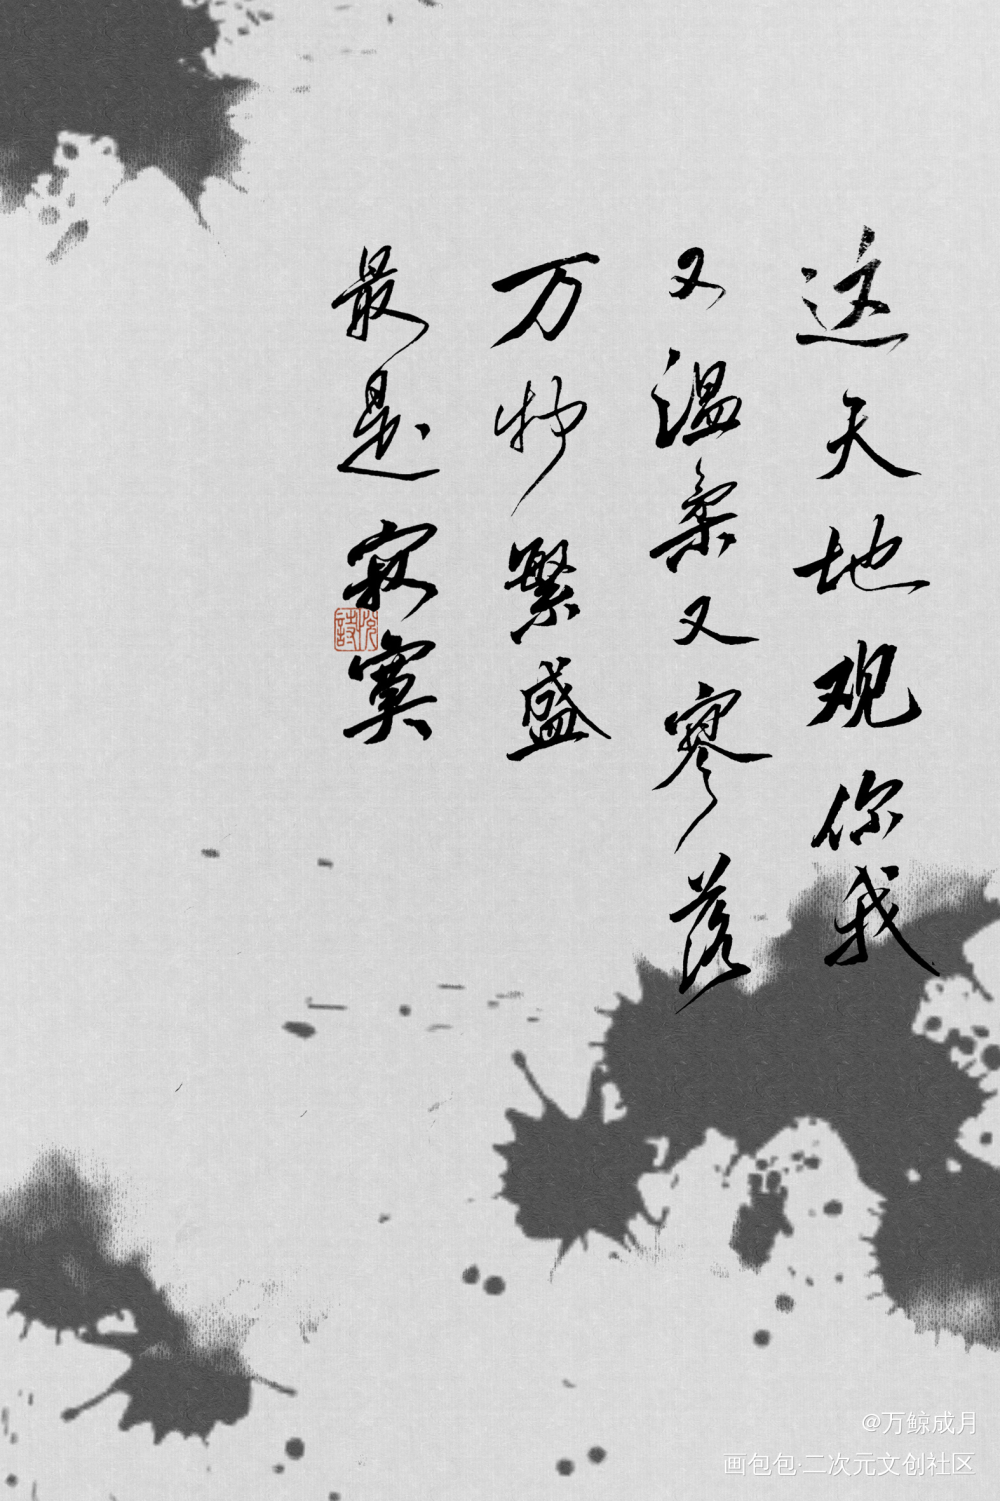 这天地观你我
又温柔又寥落
万物繁盛
最是寂寞
悦詩
@万鲸成月
画包包·二次元文创社区